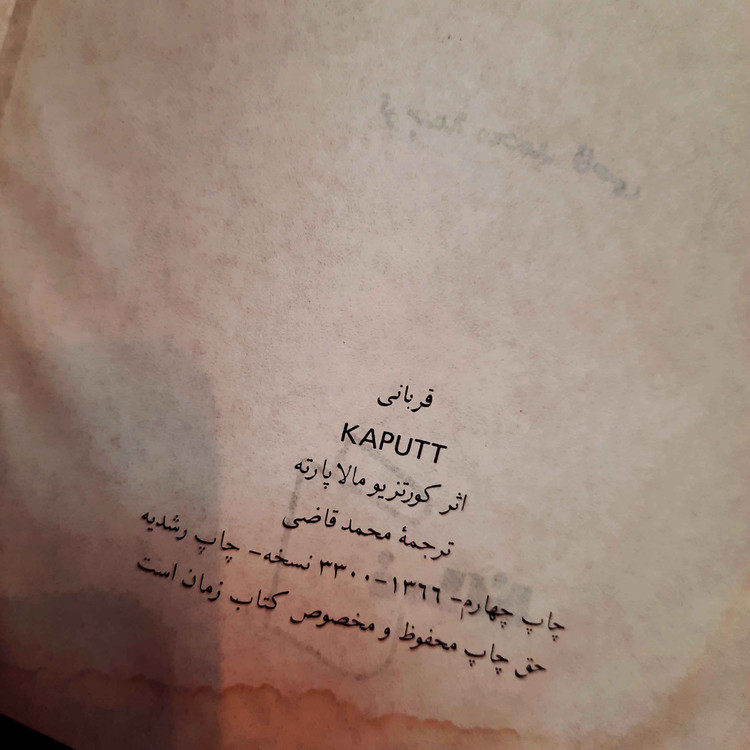 ترجمهٔ محمد قاضی
قربانی
KAPUTT
اثر کورتزیو مالاپارته
ترجمهٔ محمد قاضی
چاپ چهارم- ۱۳۶۶-۳۳۰۰ نسخه- چاپ رشدیه
حق چاپ محفوظ و مخصوص کتاب زمان است